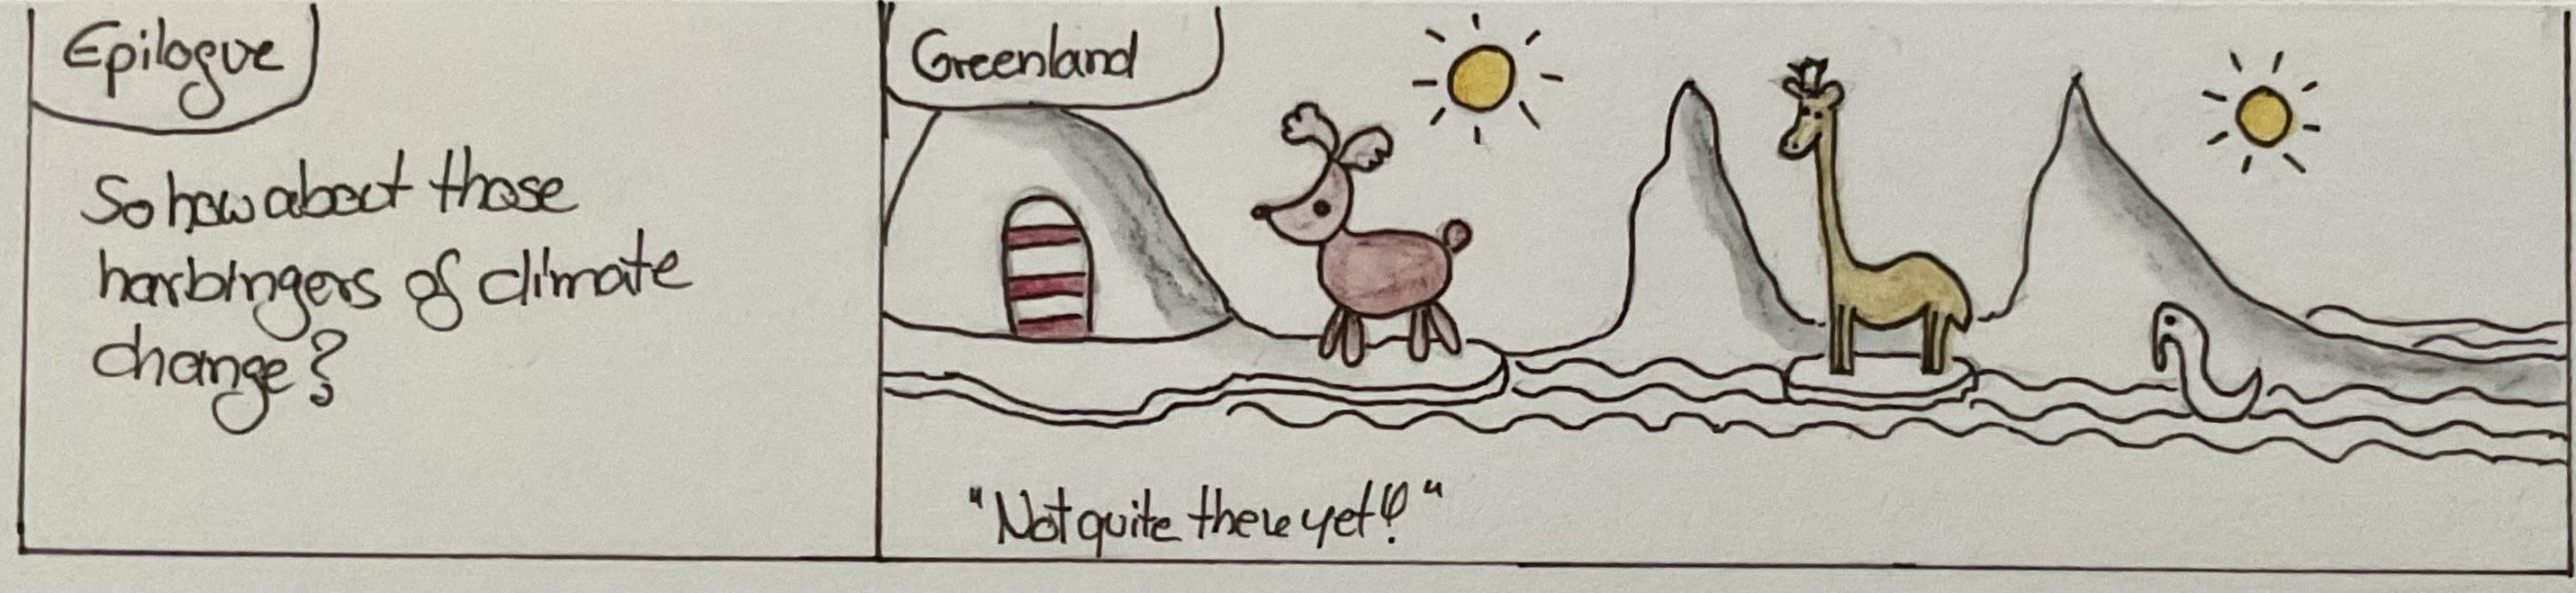 Epilogue
So how about those
harbingers of climate
change?
Greenland
"Not quite there yet!"